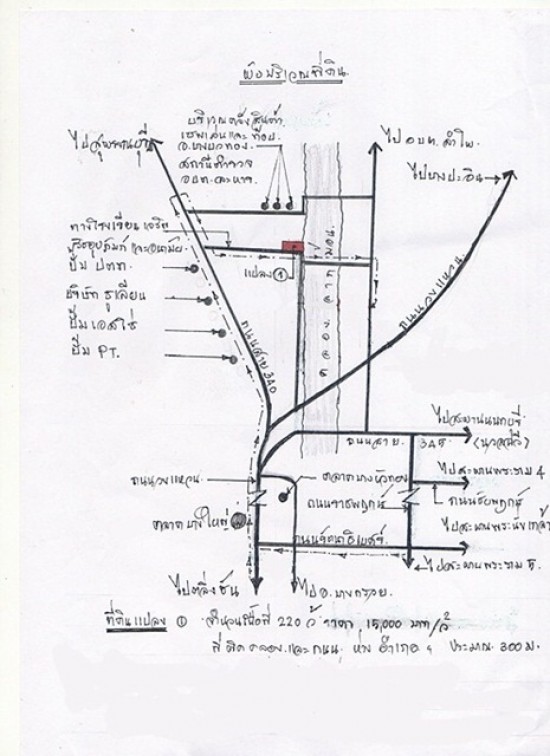 ผังบริเวณที่ดิน
บริเวณตรงสินค้า
อ.บางบัวทอง
สถานีตำรวจ
ไปสุพรรณบุรี
ไป อบต. ลำโพ
ไปบางปะอิน
ทางโรงเรียน
ปั๊ม ปตท.
บริษัท ยูเลี่ยน
ปั๊ม เอสโซ่
ปั๊ม PT.
แปลง ①
คลองลากฆ้อน
ถนนสาย 340
ถนนวงแหวน
ไปสะพานนนทบุรี
(นวลฉวี)
ถนนสาย 345
ไปสะพานพระราม 4
ถนนชัยพฤกษ์
ไปสะพานพระนั่งเกล้า
ถนนวงแหวน
ตลาดบางบัวทอง
ถนนราชพฤกษ์
ตลาดบางใหญ่
ถนนรัตนาธิเบศร์
ไปสะพานพระราม 5
ไปตลิ่งชัน
ไป อ. บางกรวย
ที่ดินแปลง ① จำนวนเนื้อที่ 220 ว์ ราคา 15,000 บาท/ว์
ที่ติดคลอง และ ถนน ห่าง อำเภอ ฯ ประมาณ 300 ม.